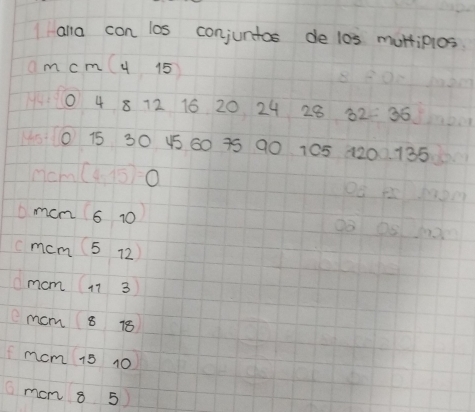 1 Halla con los conjuntos de los multiplos.
a mcm (4 15)
M4={0 4 8 12 16 20 24 28 32 36}
M15={0 15 30 45 60 75 90 105 120 135}
mcm (4,15)=0
b mcm (6 10)
c mcm (5 12)
d mcm (11 3)
e mcm (8 18)
f mcm (15 10)
G mcm (8 5)